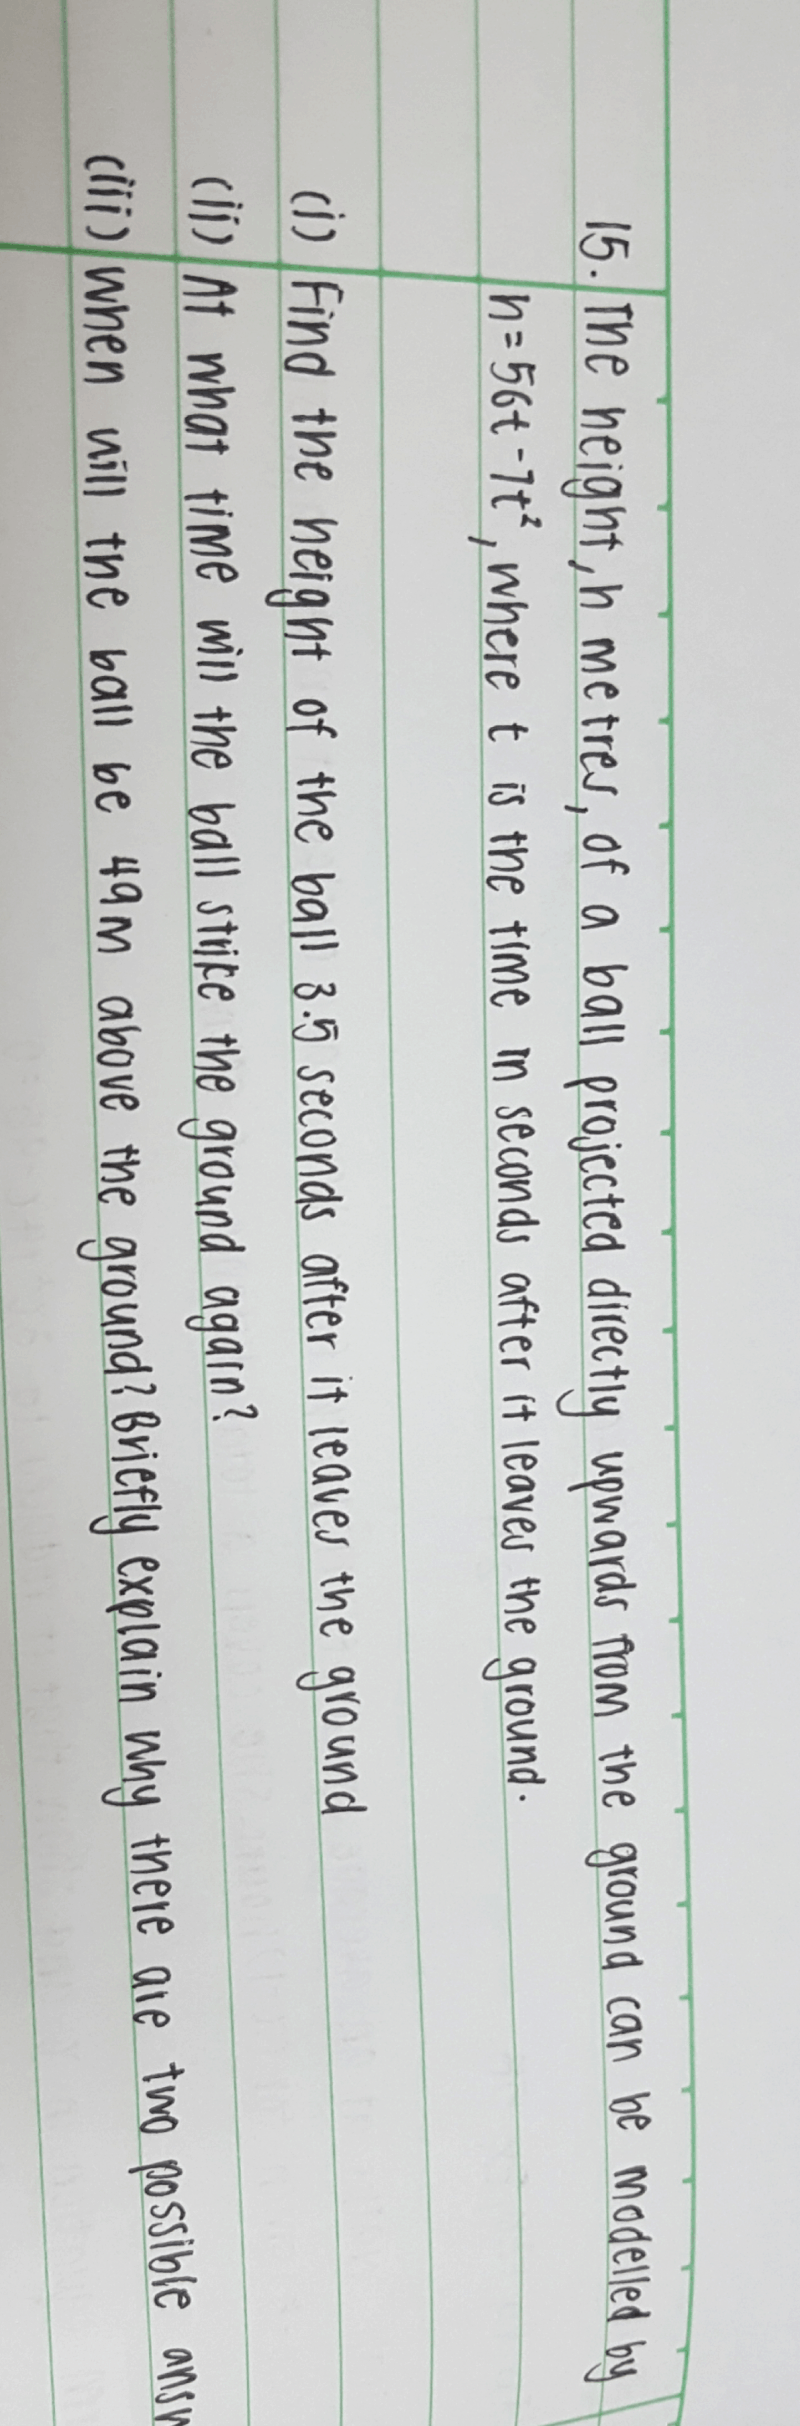 15. The height, h metres, of a ball projected directly upwards from the ground can be modelled by
h = 56t - 7t², where t is the time in seconds after it leaves the ground.
(i) Find the height of the ball 3.5 seconds after it leaves the ground
(ii) At what time will the ball strike the ground again?
(iii) When will the ball be 49m above the ground? Briefly explain why there are two possible